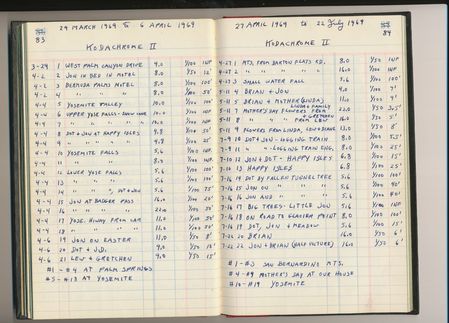 29 MARCH 1969 to 6 APRIL 1969
83
KODACHROME II
3-29 1 WEST PALM CANYON DRIVE 9.0 1/100 INF
4-2 2 JON IN BED IN MOTEL 8.0 1/50 12'
4-2 3 BERMUDA PALMS MOTEL 8.0 1/100 100'
4-2 4 " " " 8.0 1/100 50'
4-4 5 YOSEMITE VALLEY 10.0 1/100 100'
4-4 6 UPPER YOSE FALLS - SNOW CONE 10.0 1/100 INF
4-4 7 " " " " 16.0 1/100 INF
4-4 8 DOT & JON AT HAPPY ISLES 4.8 1/100 50'
4-4 9 " " " " 4.8 1/100 25'
4-4 10 YOSEMITE FALLS 5.6 1/100 INF
4-4 11 " " 8.0 1/100 INF
4-4 12 LOWER YOSE FALLS 5.6 1/100
4-4 13 " " " 5.6 1/100
4-4 14 " " ", DOT & JON 5.6 1/100 75'
4-4 15 JON AT BADGER PASS 16.0 1/100
4-4 16 " " " " 22.0 1/100
4-4 17 YOSE. HIWAY FROM CAR 11.0 1/100
4-4 18 " " " " 11.0 1/100
4-6 19 JON ON EASTER 11.0 1/50 8'
4-6 20 DOT & J.D. 4.0 1/50 15'
4-6 21 LEW & GRETCHEN 4.0 1/50 15'
#1 - #4 AT PALM SPRINGS
#5 - #18 AT YOSEMITE
27 APRIL 1969 to 22 July 1969
84
KODACHROME II
4-27 1 MTS. FROM BARTON FLATS RD. 8.0 1/100 INF
4-27 2 " " " " " 16.0 1/100 INF
4-27 3 SMALL WATER FALL 5.6 1/100 100'
5-11 4 BRIAN & JON 4.0 1/100 7'
5-11 5 BRIAN & MOTHER (LINDA) 11.0 1/100 7'
5-11 6 LINDA'S FAMILY
5-11 7 MOTHER'S DAY FLOWERS FROM 22.0 1/50 3.5'
& GRETCHEN
" " " FROM LEW 16.0 1/50 5'
5-11 9 FLOWERS FROM LINDA, LEW & DIANE 13.0 1/50 8'
7-9 10 DOT & JON - LOGGING TRAIN 8.0 1/100
7-9 11 " " - LOGGING TRAIN ENG. 8.0 1/100 25'
7-10 12 JON & DOT - HAPPY ISLES 6.8 1/100 15'
7-10 13 HAPPY ISLES 6.8 1/100 25'
7-16 14 DOT BY FALLEN TUNNEL TREE 5.6 1/100
7-16 15 JON ON " " " 5.6 1/100 90'
7-16 16 JON AND " " 5.6 1/100
7-16 17 BIG TREES - LITTLE JON 5.6 1/100 INF
7-16 18 ON ROAD TO GLACIER POINT 8.0 1/100 100'
7-16 19 DOT, JON & MEADOW 5.6 1/100 100'
7-22 20 BRIAN 16.0 1/50 6'
7-22 22 JON & BRIAN (HALF PICTURE) 16.0 1/50 6'
#1 - #3 SAN BERNARDINO MTS.
#4 - #9 MOTHER'S DAY AT OUR HOUSE
#10 - #19 YOSEMITE